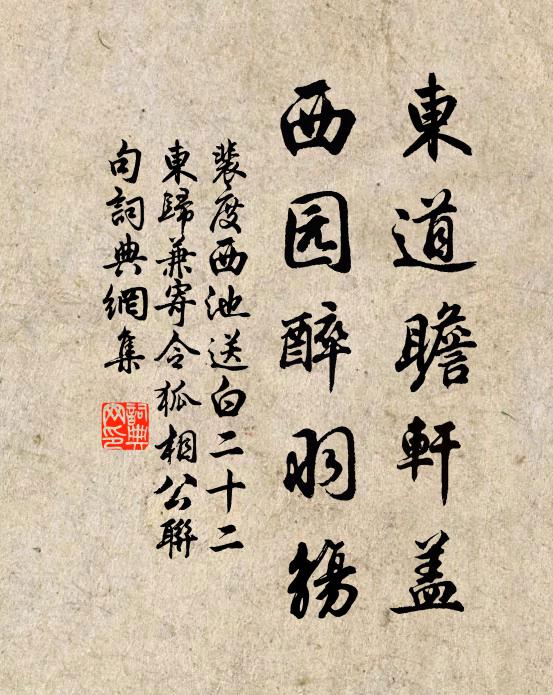 東道瞻軒盖
西园醉羽觴
裴度西池送白二十二
東歸兼寄令狐相公聯
句詞典網集
詞典
网印